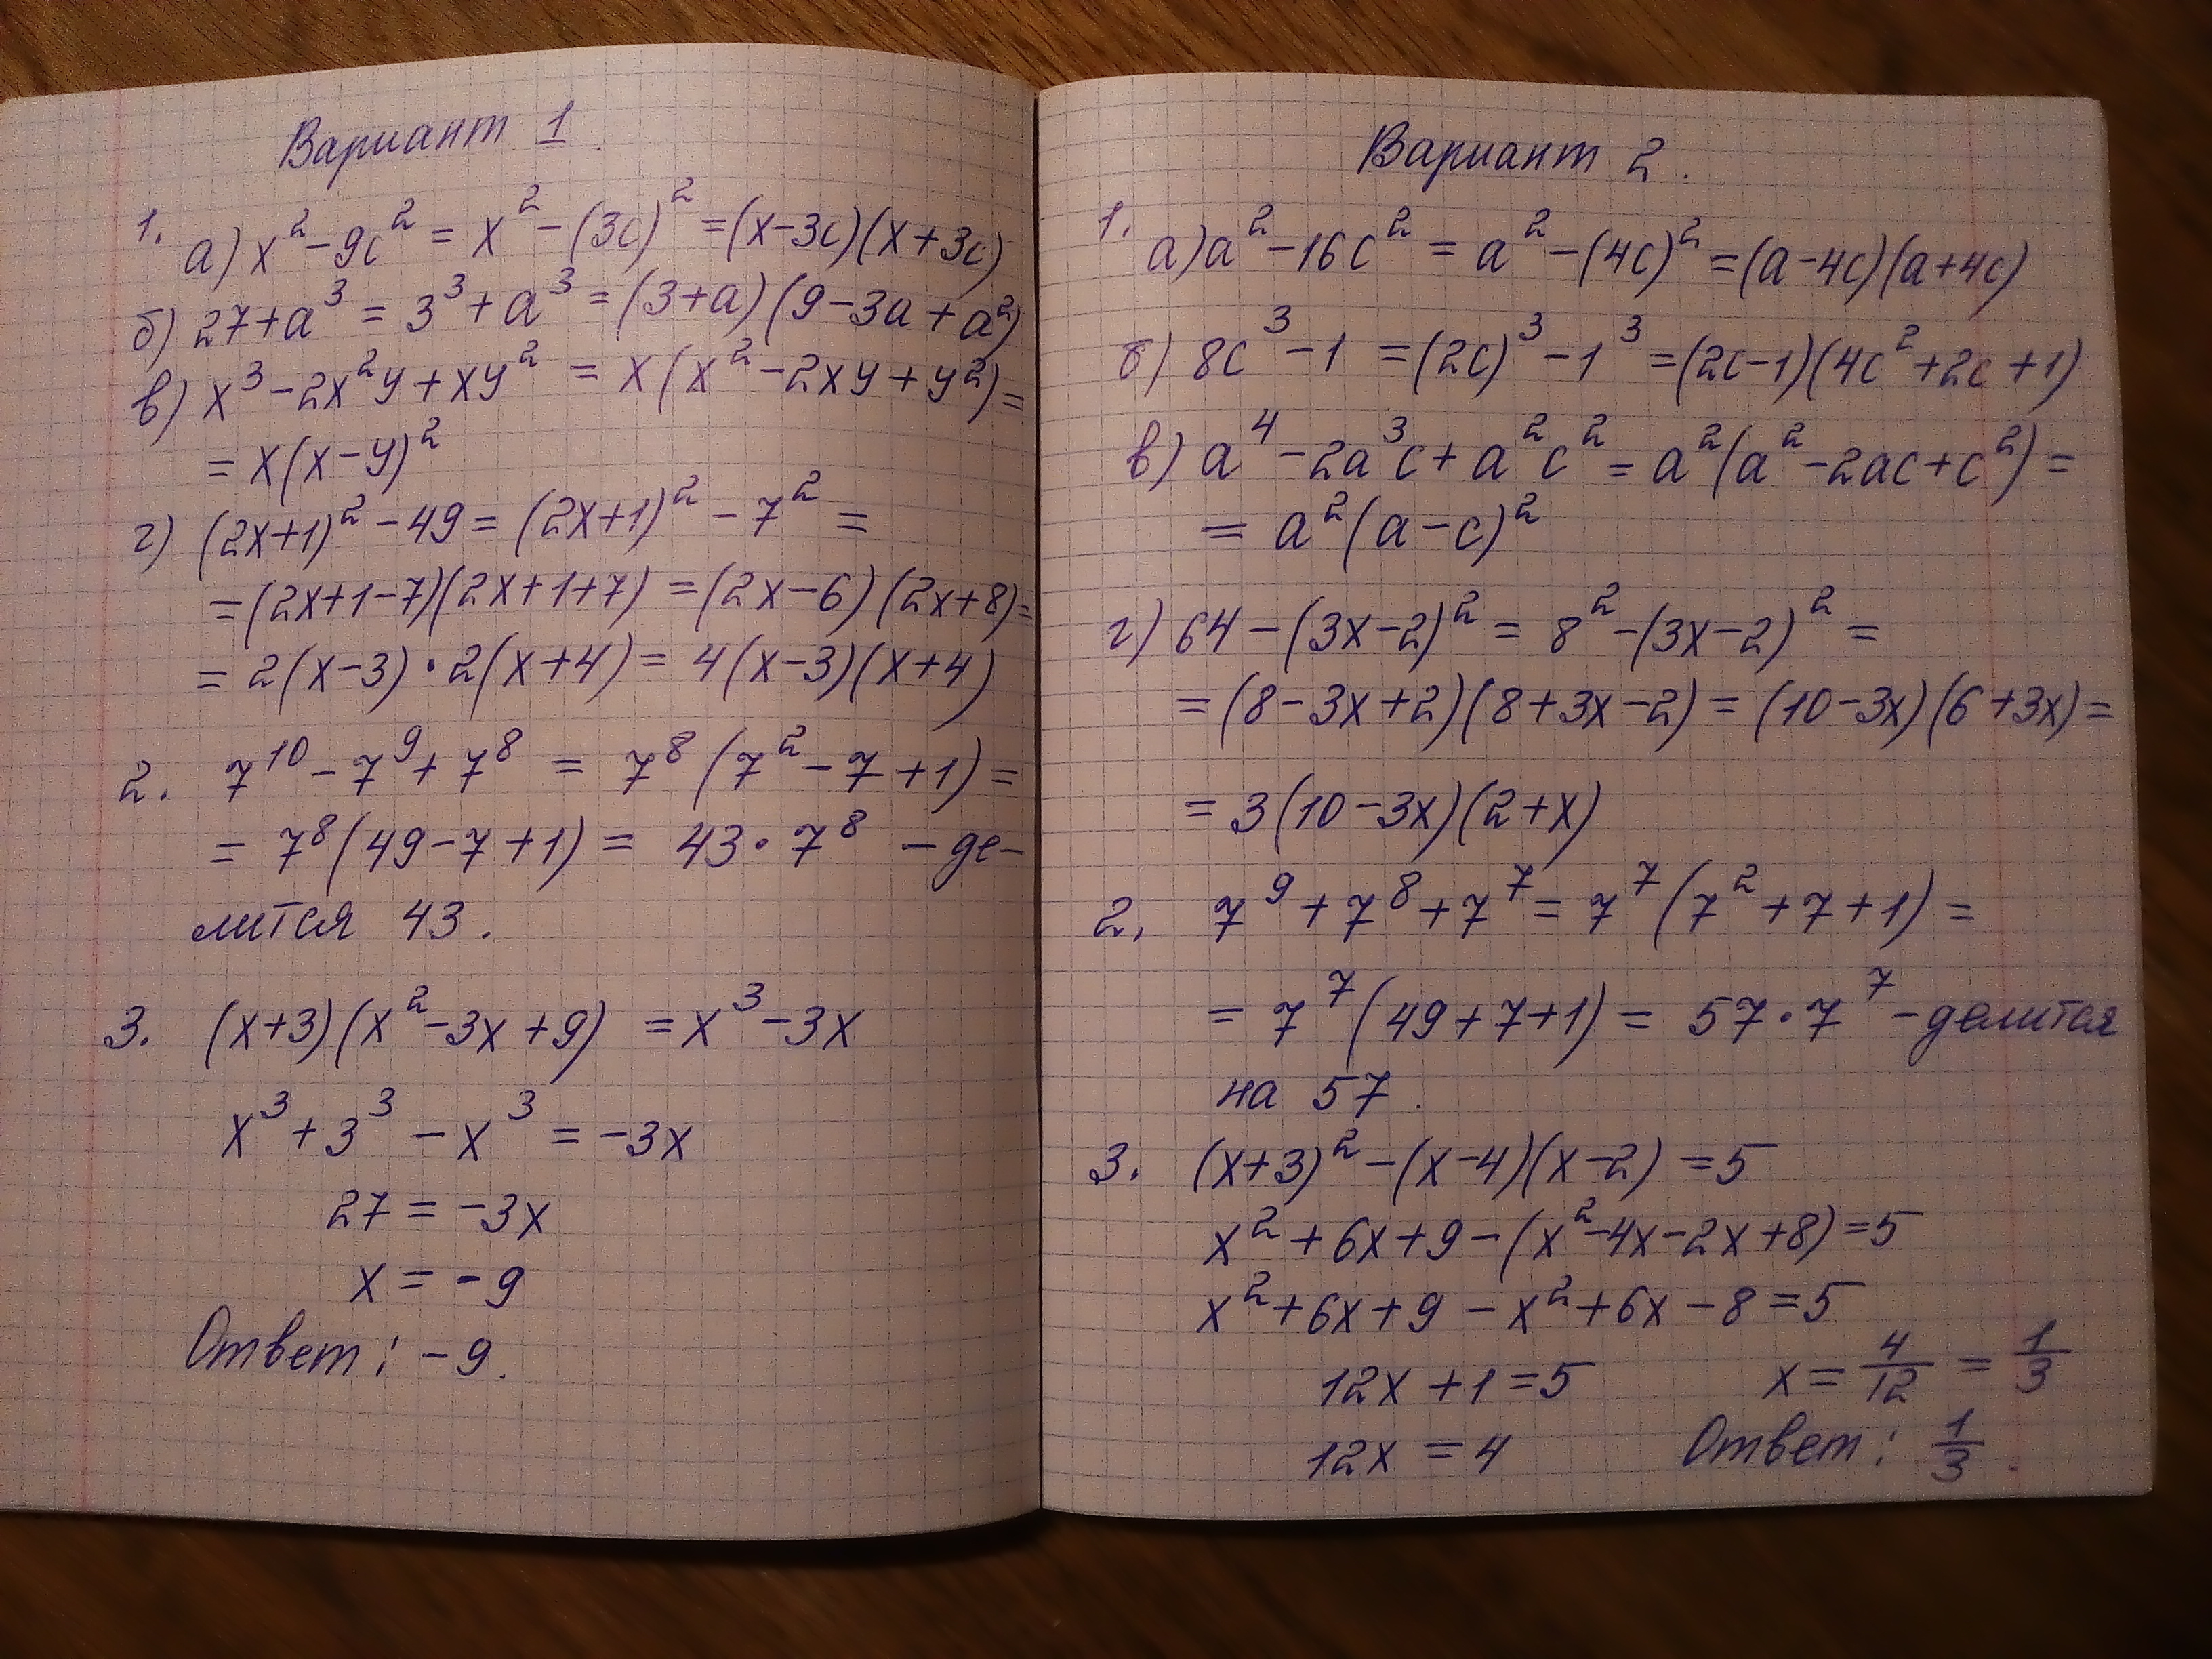 Вариант 1.
1. а) x² - 9c² = x² - (3c)² = (x-3c)(x+3c)
б) 27+a³ = 3³+a³ = (3+a)(9-3a+a²)
в) x³-2x²y+xy² = x(x²-2xy+y²)=
= x(x-y)²
г) (2x+1)² - 49 = (2x+1)² - 7² =
= (2x+1-7)(2x+1+7) = (2x-6)(2x+8)=
= 2(x-3)·2(x+4) = 4(x-3)(x+4)
2. 7¹⁰-7⁹+7⁸ = 7⁸(7²-7+1)=
= 7⁸(49-7+1) = 43·7⁸ - де-
лится 43.
3. (x+3)(x²-3x+9) = x³-3x
x³+3³-x³ = -3x
27 = -3x
x = -9
Ответ: -9.
Вариант 2.
1. а) a²-16c² = a²-(4c)² = (a-4c)(a+4c)
б) 8c³-1 = (2c)³-1³ = (2c-1)(4c²+2c+1)
в) a⁴-2a³c+a²c² = a²(a²-2ac+c²)=
= a²(a-c)²
г) 64-(3x-2)² = 8²-(3x-2)² =
= (8-3x+2)(8+3x-2) = (10-3x)(6+3x)=
= 3(10-3x)(2+x)
2. 7⁹+7⁸+7⁷ = 7⁷(7²+7+1)=
= 7⁷(49+7+1) = 57·7⁷ - делится
на 57.
3. (x+3)²-(x-4)(x-2) = 5
x²+6x+9-(x²-4x-2x+8)=5
x²+6x+9-x²+6x-8=5
12x+1=5
12x = 4
x = 4/12 = 1/3
Ответ: 1/3.